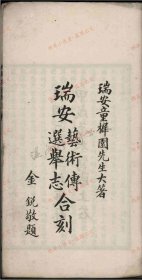 瑞安丘里樨園先生大著
瑞安藝術傳
選舉志合刻
金銳敬題